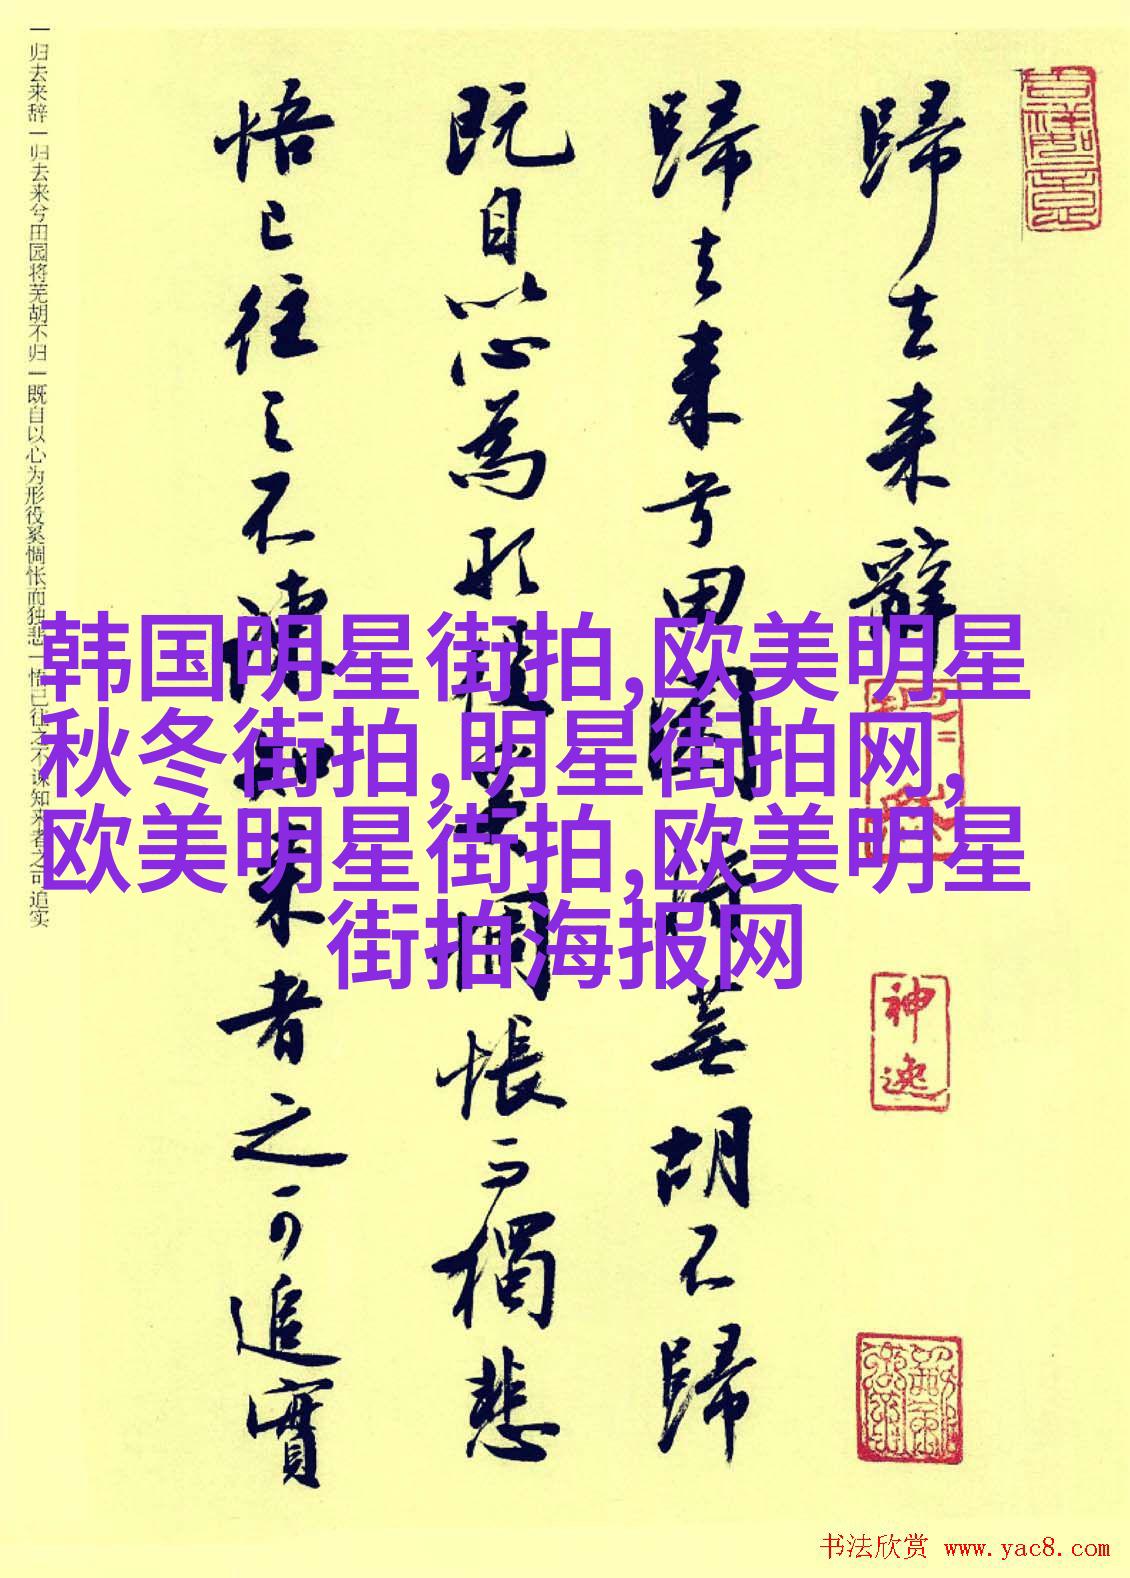 歸去来辭
歸去来兮田園将蕪胡不歸
既自以心為形役奚惆悵而獨悲
悟已往之不諫知来者之可追實
神逸
一归去来辞一归去来兮田园将芜胡不归一既自以心为形役奚惆怅而独悲一悟已往之不谏知来者之可追实
韩国明星街拍,欧美明星
秋冬街拍,明星街拍网,
欧美明星街拍,欧美明星
街拍海报网
书法欣赏 www.yac8.com